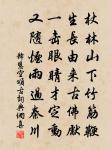 杖林山下竹筋鞭
生長由來古佛
一 眼睛才定動
又隨煙雨過秦川
釋慧空頌古詞典網集